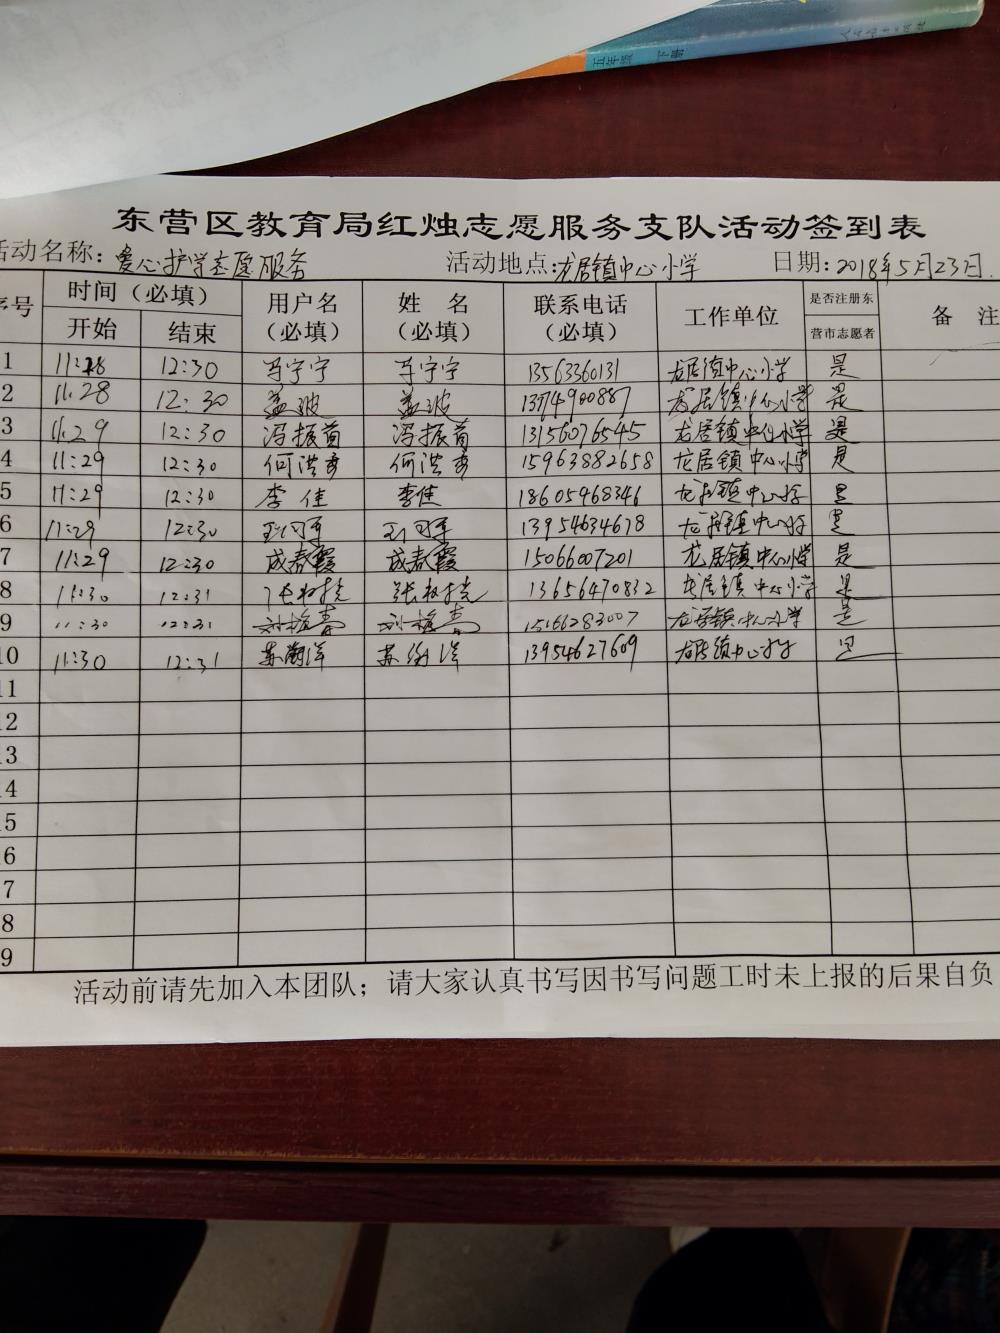 五年级 下册
东营区教育局红烛志愿服务支队活动签到表
活动名称：爱心护学志愿服务 活动地点：龙居镇中心小学 日期：2018年5月23日.
序号 时间（必填） 开始 结束 用户名（必填） 姓 名（必填） 联系电话（必填） 工作单位 是否注册东营市志愿者 备 注
1 11:28 12:30 马宁宁 马宁宁 13563360131 龙居镇中心小学 是
2 11:28 12:30 孟波 孟波 龙居镇中心小学 是
3 11:29 12:30 冯振首 冯振首 13156076545 龙居镇中心小学 是
4 11:29 12:30 何洪 何洪 15963882658 龙居镇中心小学 是
5 11:29 12:30 李佳 李佳 18605968346 龙居镇中心小学 是
6 11:29 12:30 13954634678 龙居镇中心小学 是
7 11:29 12:30 成春霞 成春霞 15066007201 龙居镇中心小学 是
8 11:30 12:31 张 张 13656470832 龙居镇中心小学 是
9 11:30 12:31 刘 刘 龙居镇中心小学 是
10 11:30 12:31 苏 洋 苏 洋 13954627609 龙居镇中心小学 是
11
12
13
14
15
16
17
18
19
活动前请先加入本团队；请大家认真书写因书写问题工时未上报的后果自负